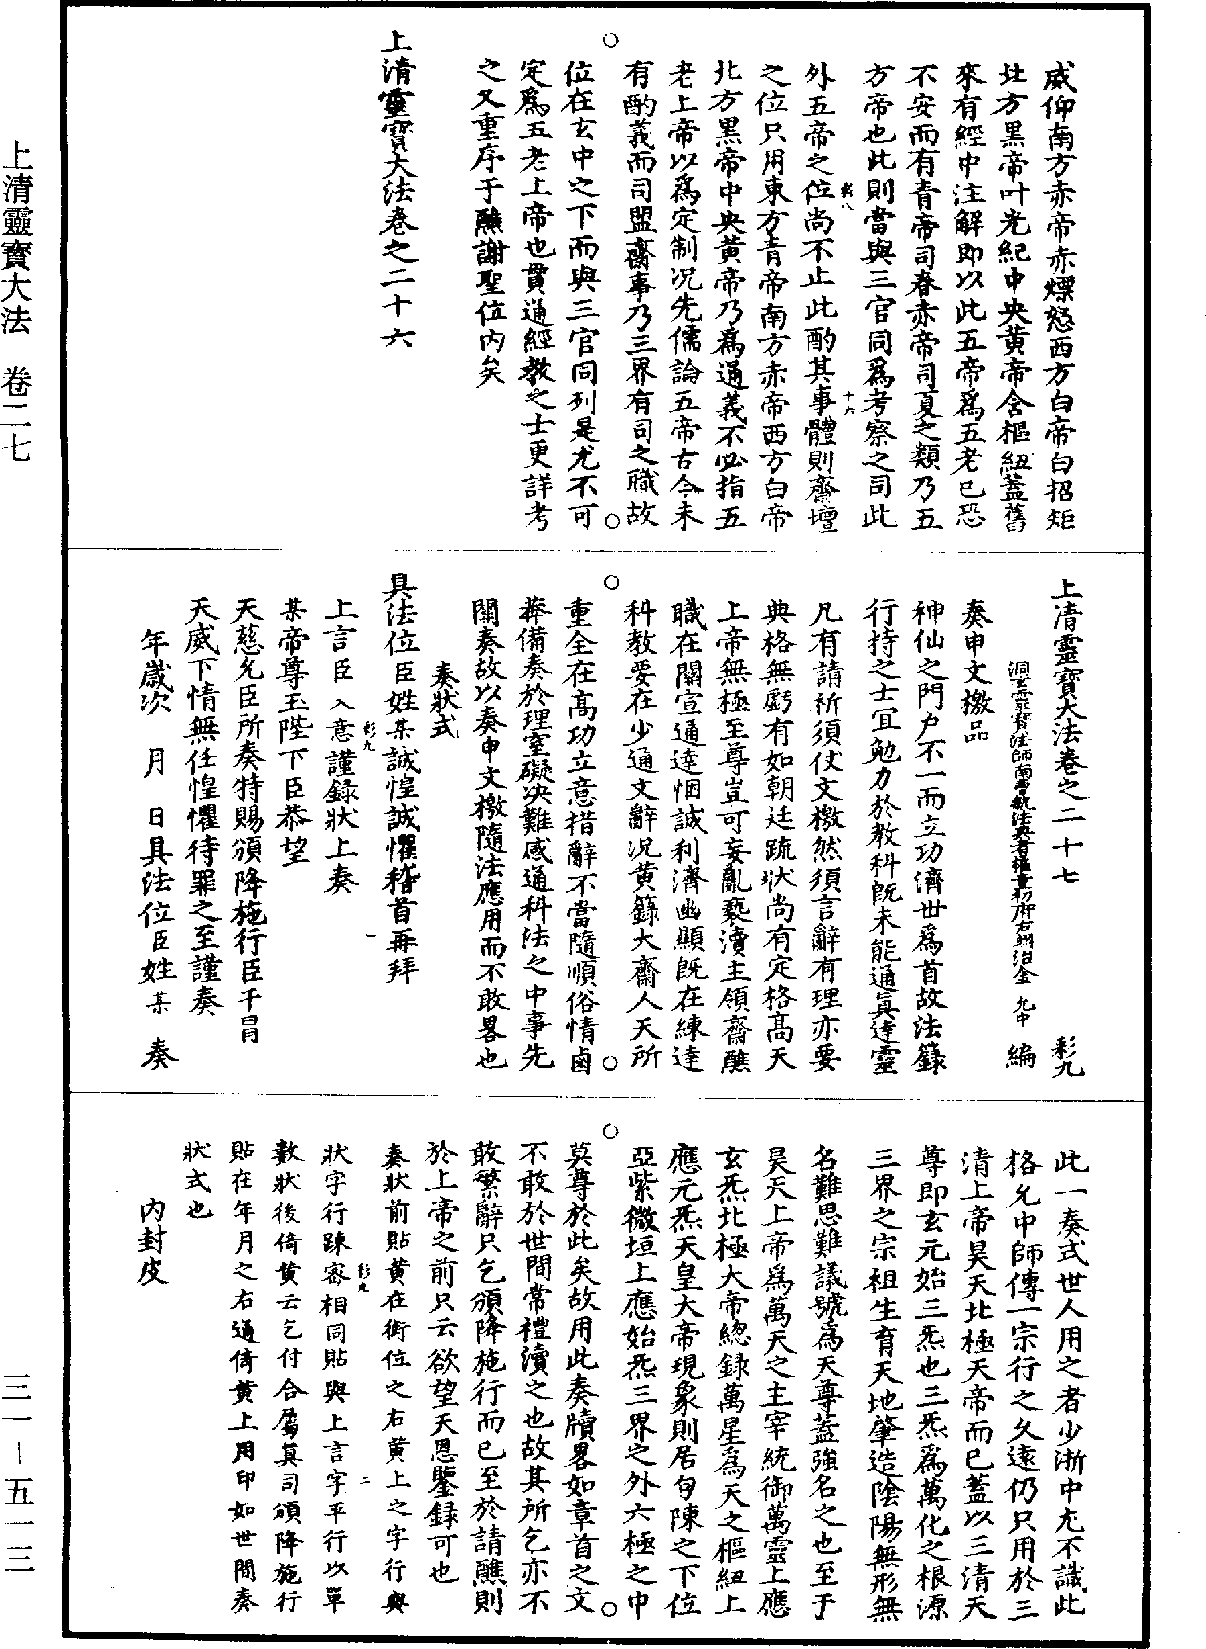 上清靈寶大法　卷二七
三一－五一三
威仰南方赤帝赤熛怒西方白帝白招矩
北方黑帝叶光紀中央黃帝含樞紐蓋舊
來有經中注解即以此五帝爲五老已恐
不安而有青帝司春赤帝司夏之類乃五
方帝也此則當與三官同爲考察之司此
外五帝之位尚不止此酌其事體則齋壇
之位只用東方青帝南方赤帝西方白帝
北方黑帝中央黃帝乃爲通義不必指五
老上帝以爲定制况先儒論五帝古今未
有酌義而司盟齋事乃三界有司之職故
位在玄中之下而與三官同列是尤不可
定爲五老上帝也貫通經教之士更詳考
之又重序于醮謝聖位內矣
上清靈寶大法卷之二十六
上清靈寶大法卷之二十七　彩九
編
奏申文檄品
神仙之門户不一而立功濟世爲首故法籙
行持之士宜勉力於教科既未能通真達靈
凡有請祈須仗文檄然須言辭有理亦要
典格無虧有如朝廷䟽狀尚有定格高天
上帝無極至尊豈可妄亂褻瀆主領齋醮
職在關宣通達悃誠利濟幽顯既在練達
科教要在少通文辭况黃籙大齋人天所
重全在高功立意措辭不當隨順俗情鹵
莽備奏於理窒礙决難感通科法之中事先
關奏故以奏申文檄隨法應用而不敢畧也
奏狀式
具法位臣姓某誠惶誠懼稽首再拜
上言臣入意謹錄狀上奏
某帝尊玉陛下臣恭望
天慈允臣所奏特賜頒降施行臣干冒
天威下情無任惶懼待罪之至謹奏
年歲次　月　日具法位臣姓某　奏
此一奏式世人用之者少浙中尤不識此
格允中師傳一宗行之久遠仍只用於三
清上帝昊天北極天帝而已蓋以三清天
尊即玄元始三炁也三炁爲萬化之根源
三界之宗祖生育天地肇造陰陽無形無
名難思難議號爲天尊蓋強名之也至于
昊天上帝爲萬天之主宰統御萬靈上應
玄炁北極大帝緫錄萬星爲天之樞紐上
應元炁天皇大帝現象則居勾陳之下位
亞紫微垣上應始炁三界之外六極之中
莫尊於此矣故用此奏牘畧如章首之文
不敢於世間常禮瀆之也故其所乞亦不
敢繁辭只乞頒降施行而已至於請醮則
於上帝之前只云欲望天恩鑒録可也
奏狀前貼黃在銜位之右黃上之字行與
狀字行踈密相同貼與上言字平行以單
數狀後倚黃云乞付合屬真司頒降施行
貼在年月之右通倚黃上用印如世間奏
狀式也
內封皮